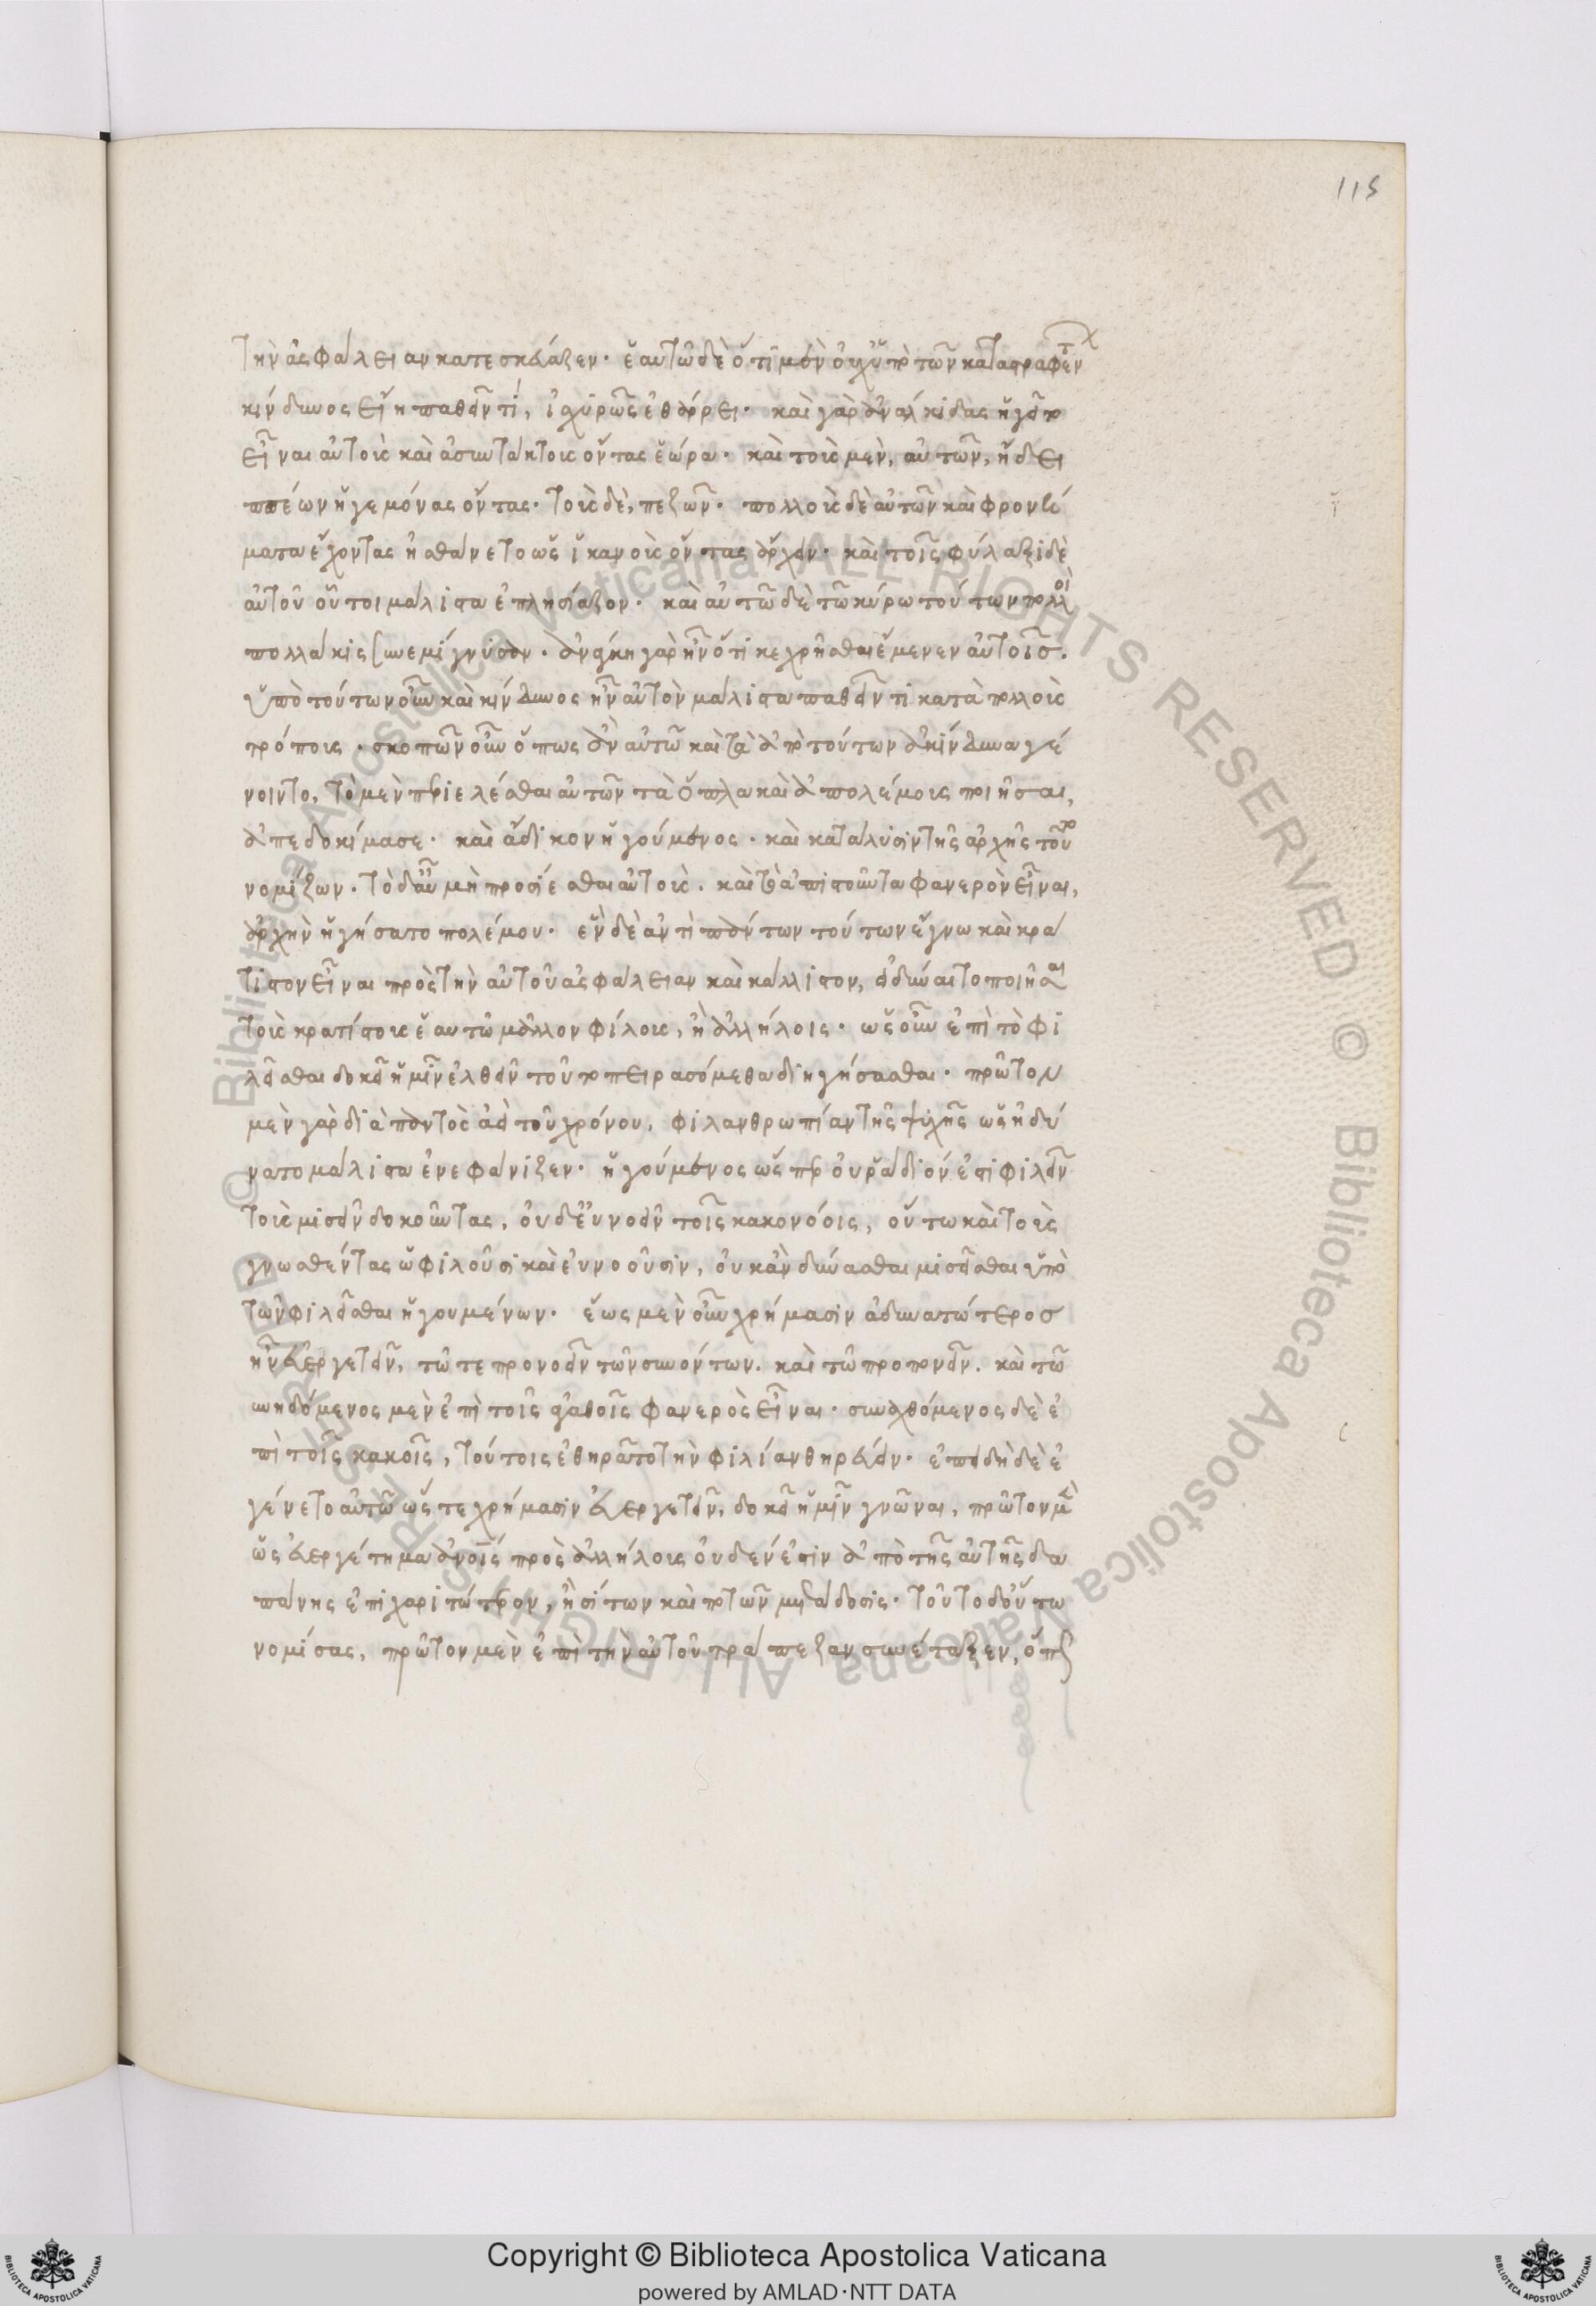 115
τὴν ἀσφάλειαν κατεσκεύαζεν· ἑαυτῷ δὲ ὅτι μὲν οὐχ ὑπὸ τῶν καταστραφέντων
κίνδυνος εἴη παθεῖν τί, ἰσχυρῶς ἐθάρρει· καὶ γὰρ ἀνάλκιδας ἡγεῖτο
εἶναι αὐτοὺς καὶ ἀσυντάκτους ὄντας ἑώρα· καὶ τοὺς μὲν, αὐτῶν, ᾔδει
ἱππέων ἡγεμόνας ὄντας· τοὺς δὲ, πεζῶν· πολλοὺς δὲ αὐτῶν καὶ φρονή
ματα ἔχοντας ᾐσθάνετο ὡς ἱκανοὺς ὄντας ἄρχειν· καὶ τοῖς φύλαξι δὲ
αὐτοῦ οὗτοι μάλιστα ἐπλησίαζον· καὶ αὐτῷ δὲ τῷ κύρῳ τούτων πολλοὶ
πολλάκις συνεμίγνυσαν· ἀνάγκη γὰρ ἦν ὅτι κεχρῆσθαι ἔμενεν αὐτοῖς.
ὑπὸ τούτων οὖν καὶ κίνδυνος ἦν αὐτὸν μάλιστα παθεῖν τι κατὰ πολλοὺς
τρόπους· σκοπῶν οὖν ὅπως ἂν αὐτῷ καὶ τὰ ἀπὸ τούτων ἀκίνδυνα γέ
νοιντο, τὸ μὲν περιελέσθαι αὐτῶν τὰ ὅπλα καὶ ἀπολέμους ποιῆσαι,
ἀπεδοκίμασε· καὶ ἄδικον ἡγούμενος· καὶ κατάλυσιν τῆς ἀρχῆς τοῦτο
νομίζων· τὸ δ' αὖ μὴ προσίεσθαι αὐτοὺς· καὶ τὸ ἀπιστοῦντα φανερὸν εἶναι,
ἀρχὴν ἡγήσατο πολέμου· ἓν δὲ ἀντὶ πάντων τούτων ἔγνω καὶ κρά
τιστον εἶναι πρὸς τὴν αὑτοῦ ἀσφάλειαν καὶ κάλλιστον, εἰ δύναιτο ποιῆσαι
τοὺς κρατίστους ἑαυτῷ μᾶλλον φίλους, ἢ ἀλλήλοις· ὡς οὖν ἐπὶ τὸ φι
λεῖσθαι δοκεῖ ἡμῖν ἐλθεῖν τοῦτο πειρασόμεθα διηγήσασθαι· πρῶτον
μὲν γὰρ διὰ παντὸς ἀεὶ τοῦ χρόνου, φιλανθρωπίαν τῆς ψυχῆς ὡς ἠδύ
νατο μάλιστα ἐνεφάνιζεν· ἡγούμενος ὥσπερ οὐ ῥάδιόν ἐστι φιλεῖν
τοὺς μισεῖν δοκοῦντας, οὐδ' εὐνοεῖν τοῖς κακονόοις, οὕτω καὶ τοὺς
γνωσθέντας ὡς φιλοῦσι καὶ εὐνοοῦσιν, οὐκ ἂν δύνασθαι μισεῖσθαι ὑπὸ
τῶν φιλεῖσθαι ἡγουμένων· ἕως μὲν οὖν χρήμασιν ἀδυνατώτερος
ἦν εὐεργετεῖν, τῷ τε προνοεῖν τῶν συνόντων· καὶ τῷ προπονεῖν· καὶ τῷ
συνηδόμενος μὲν ἐπὶ τοῖς ἀγαθοῖς φανερὸς εἶναι· συναχθόμενος δὲ ἐ
πὶ τοῖς κακοῖς, τούτοις ἐθηρᾶτο τὴν φιλίαν θηρεύειν· ἐπειδὴ δὲ ἐ
γένετο αὐτῷ ὥστε χρήμασιν εὐεργετεῖν, δοκεῖ ἡμῖν γνῶναι, πρῶτον μὲν
ὡς εὐεργέτημα ἀνοις πρὸς ἀλλήλους οὐδέν ἐστιν ἀπὸ τῆς αὐτῆς δα
πάνης ἐπιχαριτώτερον, ἢ σίτων καὶ ποτῶν μετάδοσις· τοῦτο δ' οὕτω
νομίσας, πρῶτον μὲν ἐπὶ τὴν αὑτοῦ τράπεζαν συνέταξεν, ὅπως
© Biblioteca Apostolica Vaticana ALL RIGHTS RESERVED
Copyright © Biblioteca Apostolica Vaticana
powered by AMLAD·NTT DATA